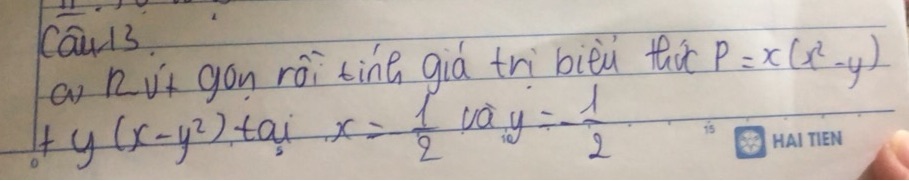 Câu 13.
a) Rút gọn rồi tính giá trị biểu thức P = x(x² - y)
+ y(x - y²) tại x = 1/2 và y = -1/2
0 5 10 15 HAI TIEN